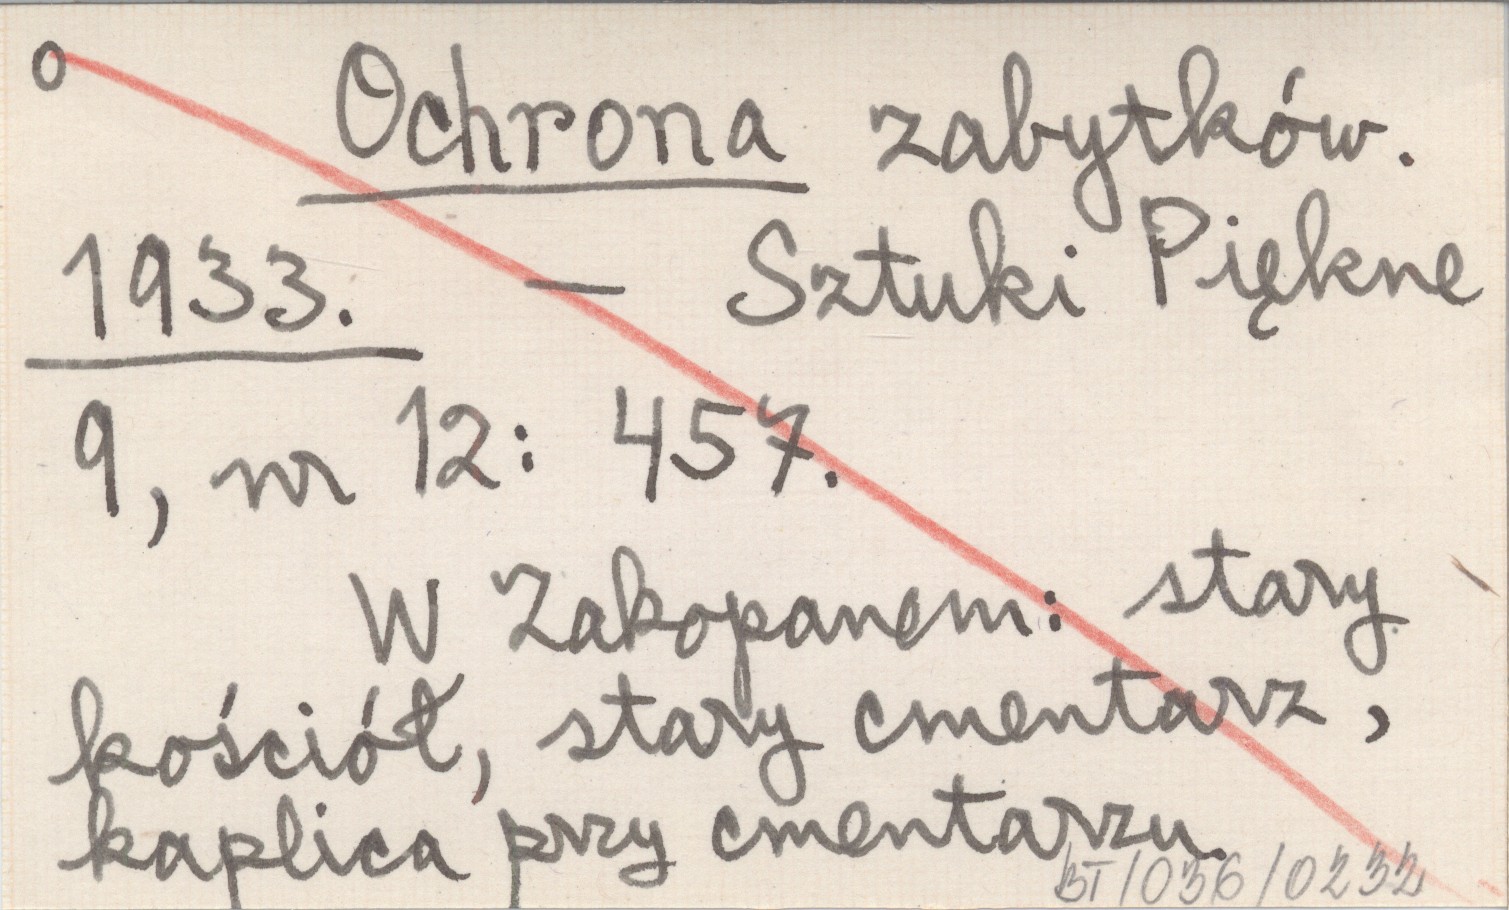 o Ochrona zabytków.
1933. — Sztuki Piękne
9, nr 12: 457.
W Zakopanem: stary
kościół, stary cmentarz,
kaplica przy cmentarzu.
BT/036/0232